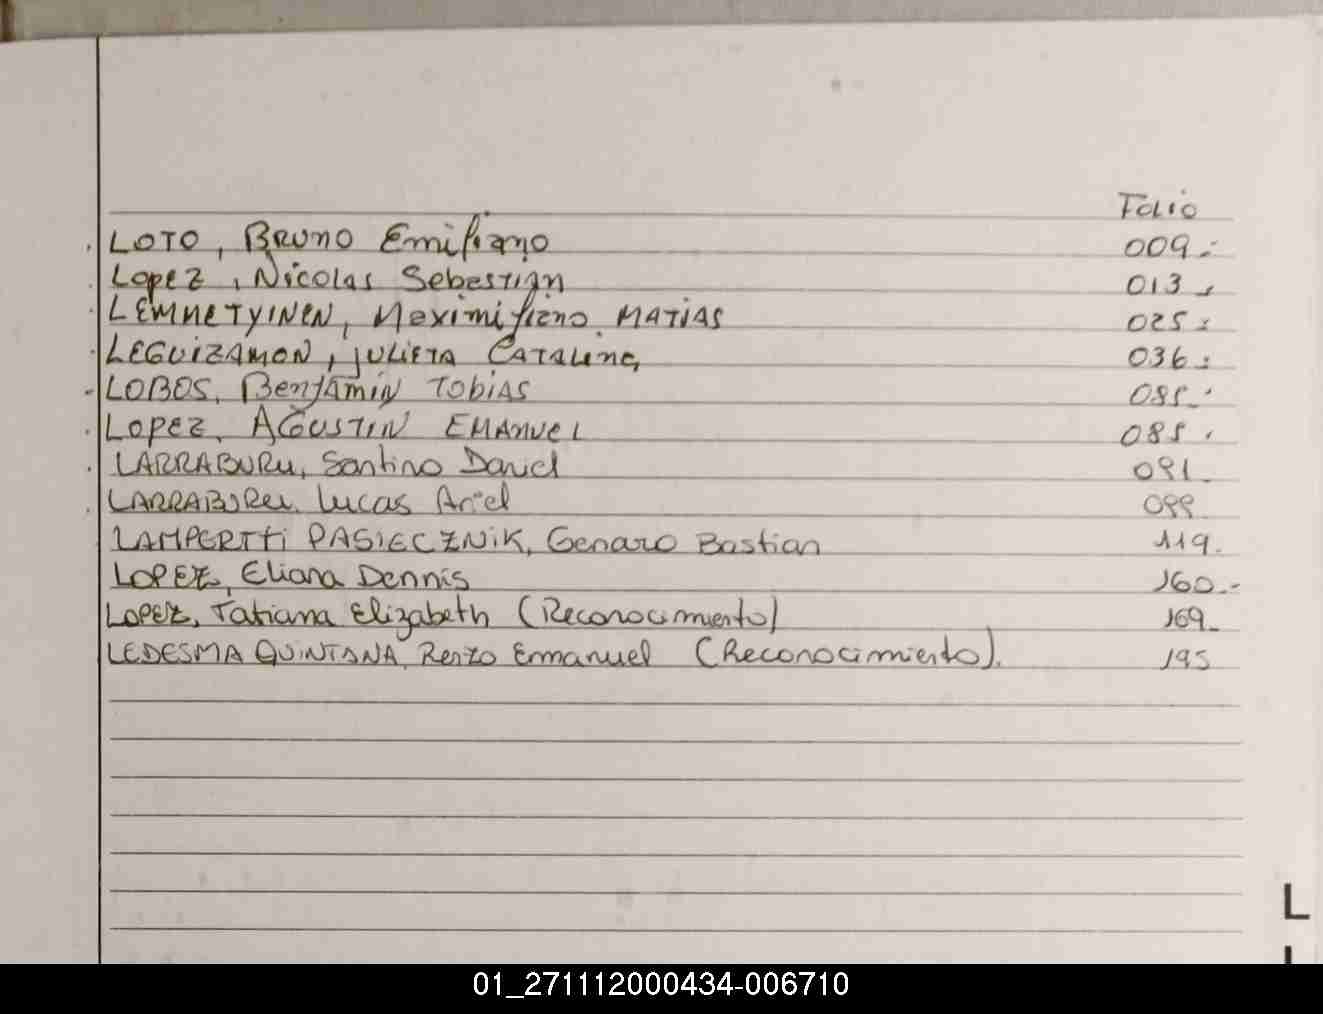 Folio
LOTO, BRUNO Emiliano 009.-
Lopez, Nicolas Sebastian 013
LEMMETYINEN, Maximiliano MATIAS 025
LEGUIZAMON, JULIETA CATALINA 036
LOBOS, BenJAMIN TOBIAS 085
LOPEZ, AGUSTIN EMANUEL 085
LARRABURU, Santino Daniel 091
LARRABURU Lucas Ariel 099
LAMPERTTI PASIECZNIK, Genaro Bastian 119.
LOPEZ, Eliana Dennis 160.-
LOPEZ, Tatiana Elizabeth (Reconocimiento) 169_
LEDESMA QUINTANA, Renzo Emmanuel (Reconocimiento). 195
L
01_271112000434-006710